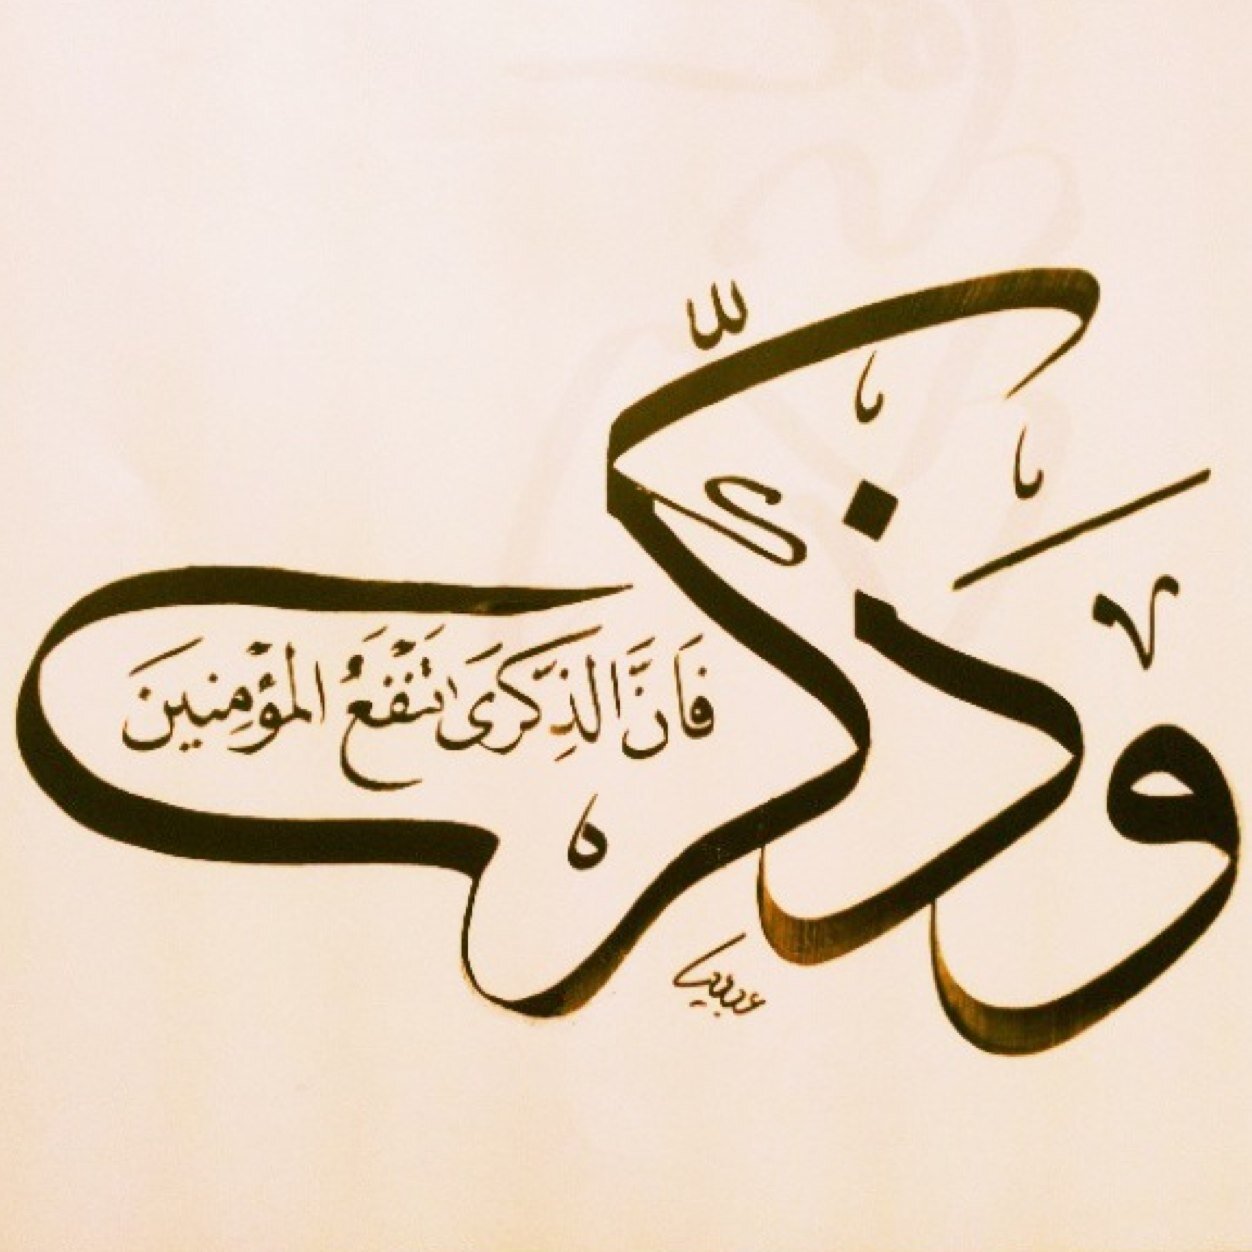 وَذَكِّر
فَاِنَّ الذِّكْرَىٰ تَنْفَعُ المُؤْمِنِينَ